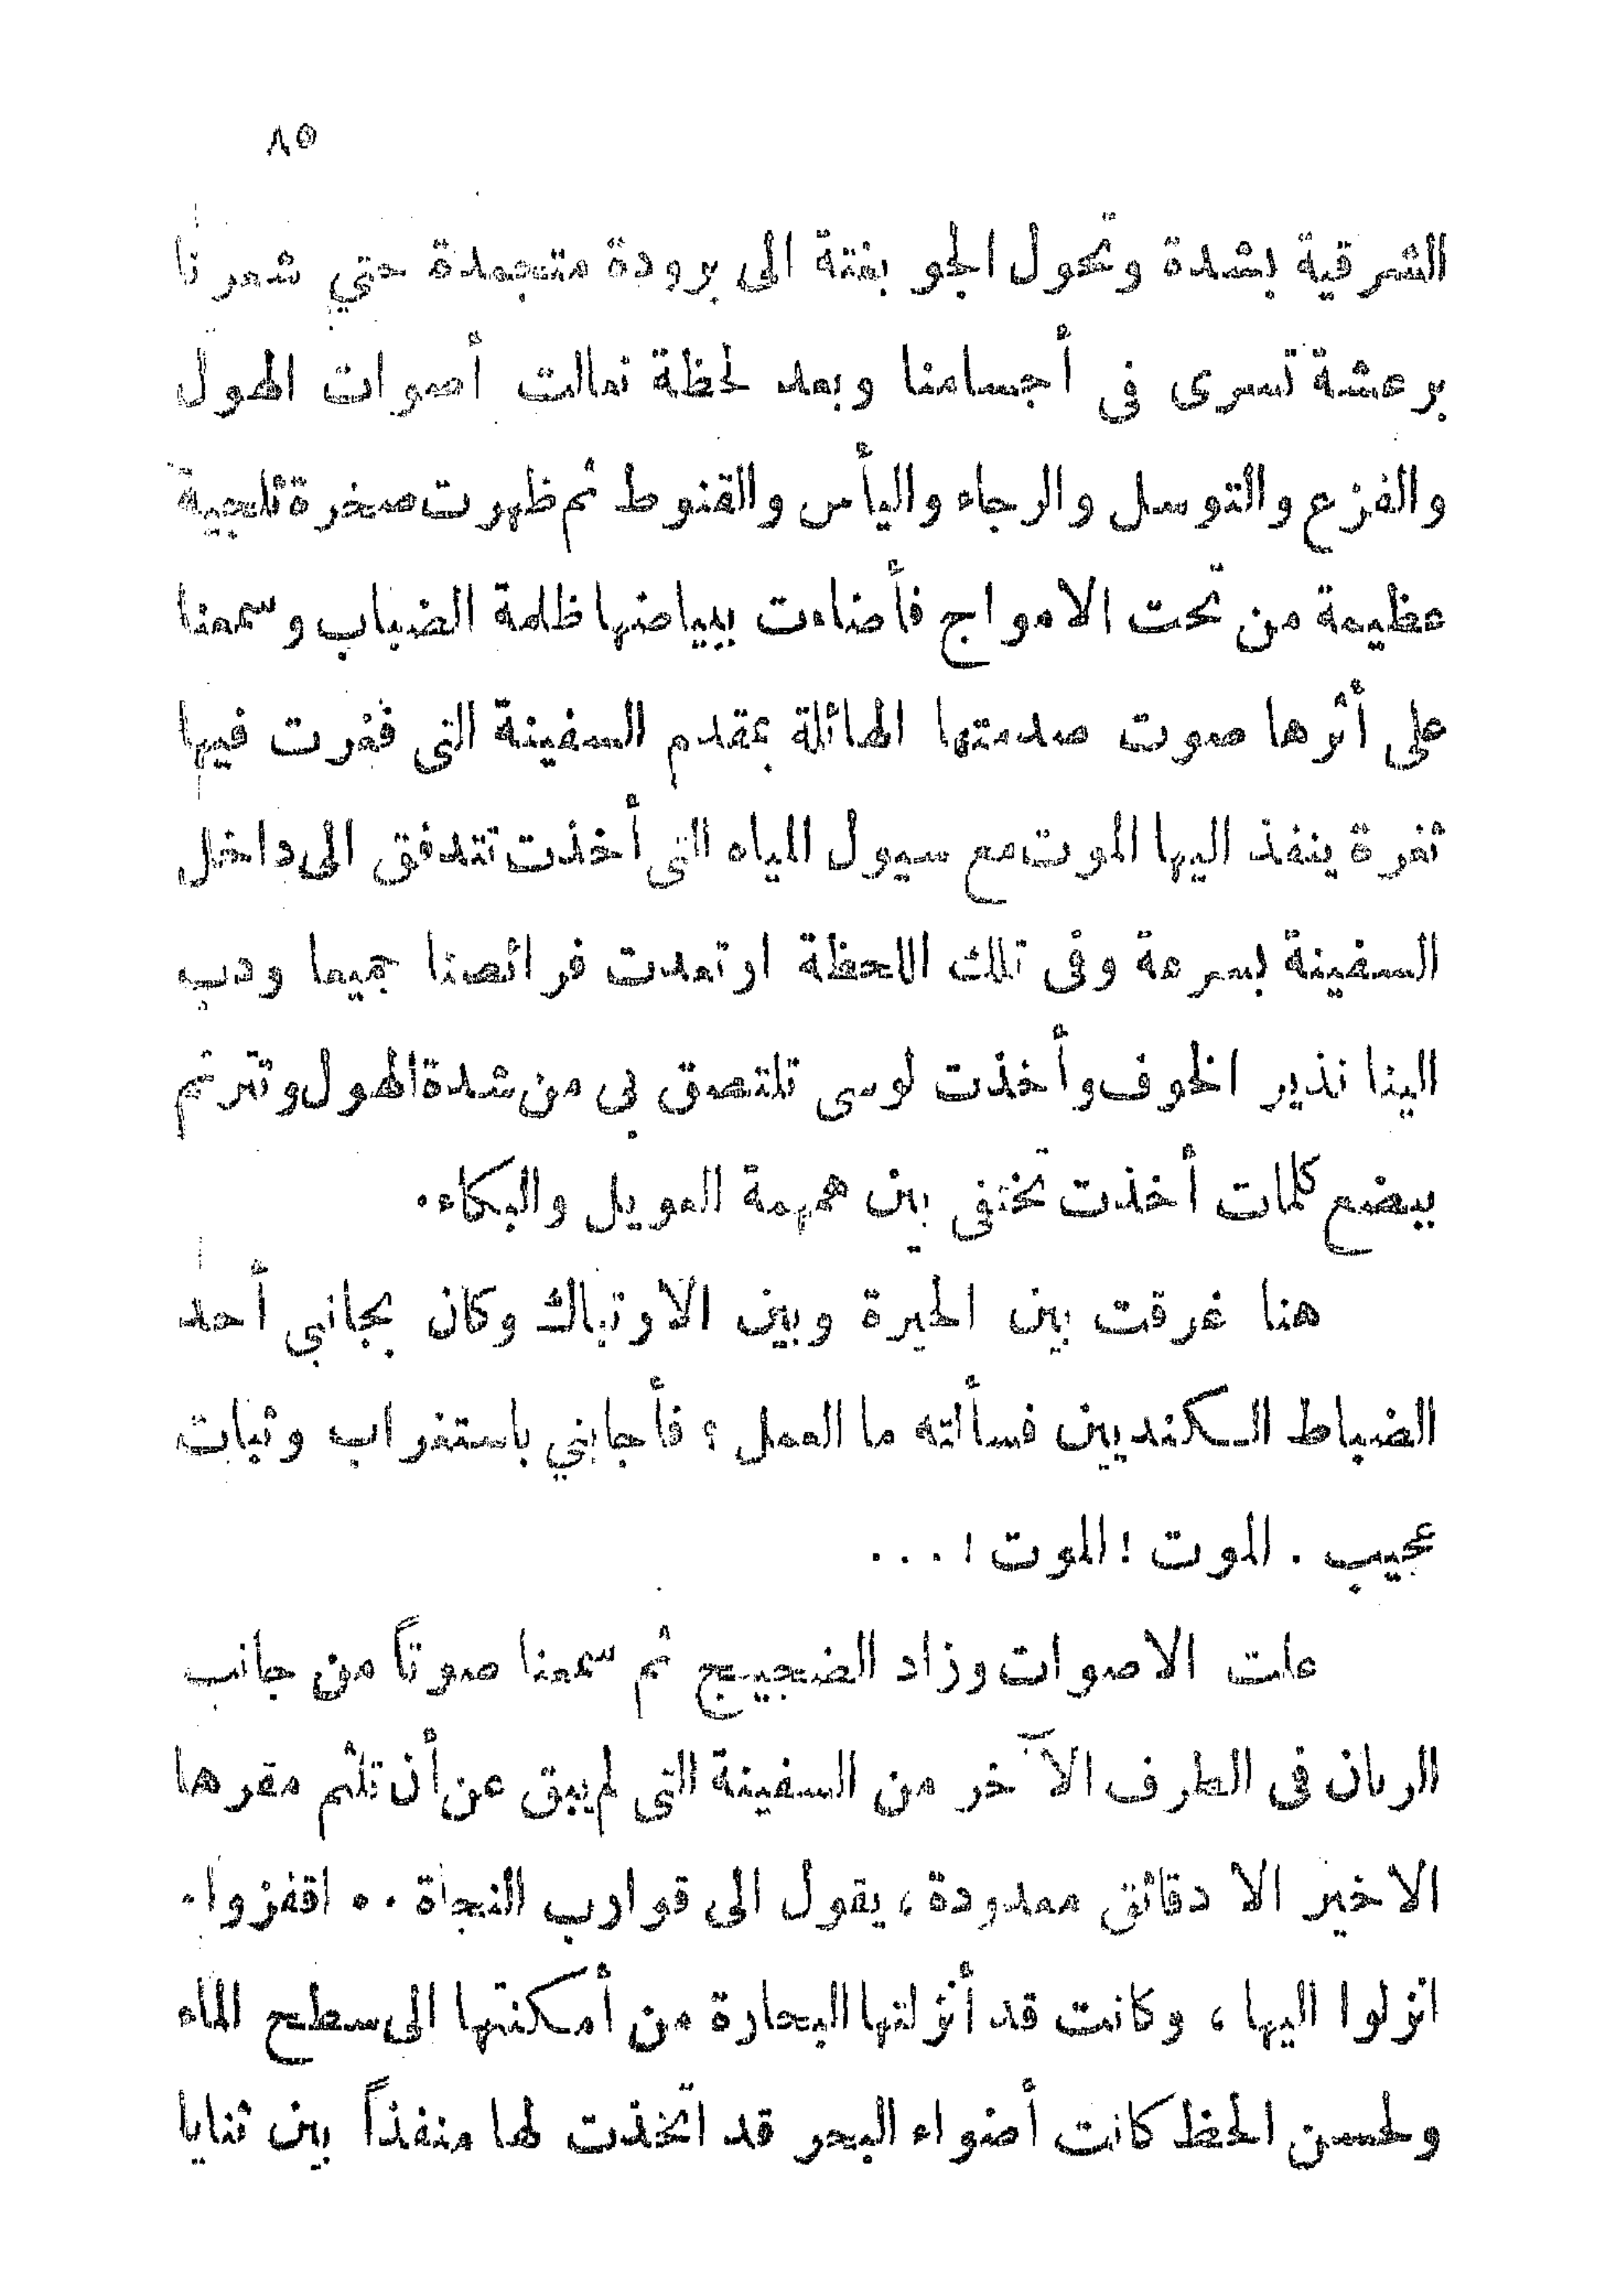 ٨٥
الشرقية بشدة وتحول الجو بغتة الى برودة متجمدة حتي شعرنا
برعشة تسرى فى أجسامنا وبعد لحظة تعالت أصوات الهول
والفزع والتوسل والرجاء واليأس والقنوط ثم ظهرت صخرة ثلجية
عظيمة من تحت الامواج فأضاءت ببياضها ظلمة الضباب وسمعنا
على أثرها صوت صدمتها الهائلة بمقدم السفينة التى فغرت فيها
ثغرة ينفذ اليها الموت مع سيول المياه التى أخذت تتدفق الى داخل
السفينة بسرعة وفى تلك اللحظة ارتعدت فرائصنا جميعا ودب
الينا نذير الخوف وأخذت لوسى تلتصق بى من شدة الهول وتترنم
ببضع كلمات أخذت تختفى بين همهمة العويل والبكاء.
هنا غرقت بين الحيرة وبين الارتباك وكان بجانبي أحد
الضباط السكنديين فسألته ما العمل ؟ فأجابني باستغراب وثبات
عجيب . الموت ! الموت ! ...
علت الاصوات وزاد الضجيج ثم سمعنا صوتاً من جانب
الربان فى الطرف الآخر من السفينة التى لم يبق عن أن تلثم مقرها
الاخير الا دقائق معدودة ، يقول الى قوارب النجاة .. اقفزوا .
انزلوا اليها ، وكانت قد أنزلتها البحارة من أمكنتها الى سطح الماء
ولحسن الحظ كانت أضواء البحر قد اتخذت لها منفذاً بين ثنايا